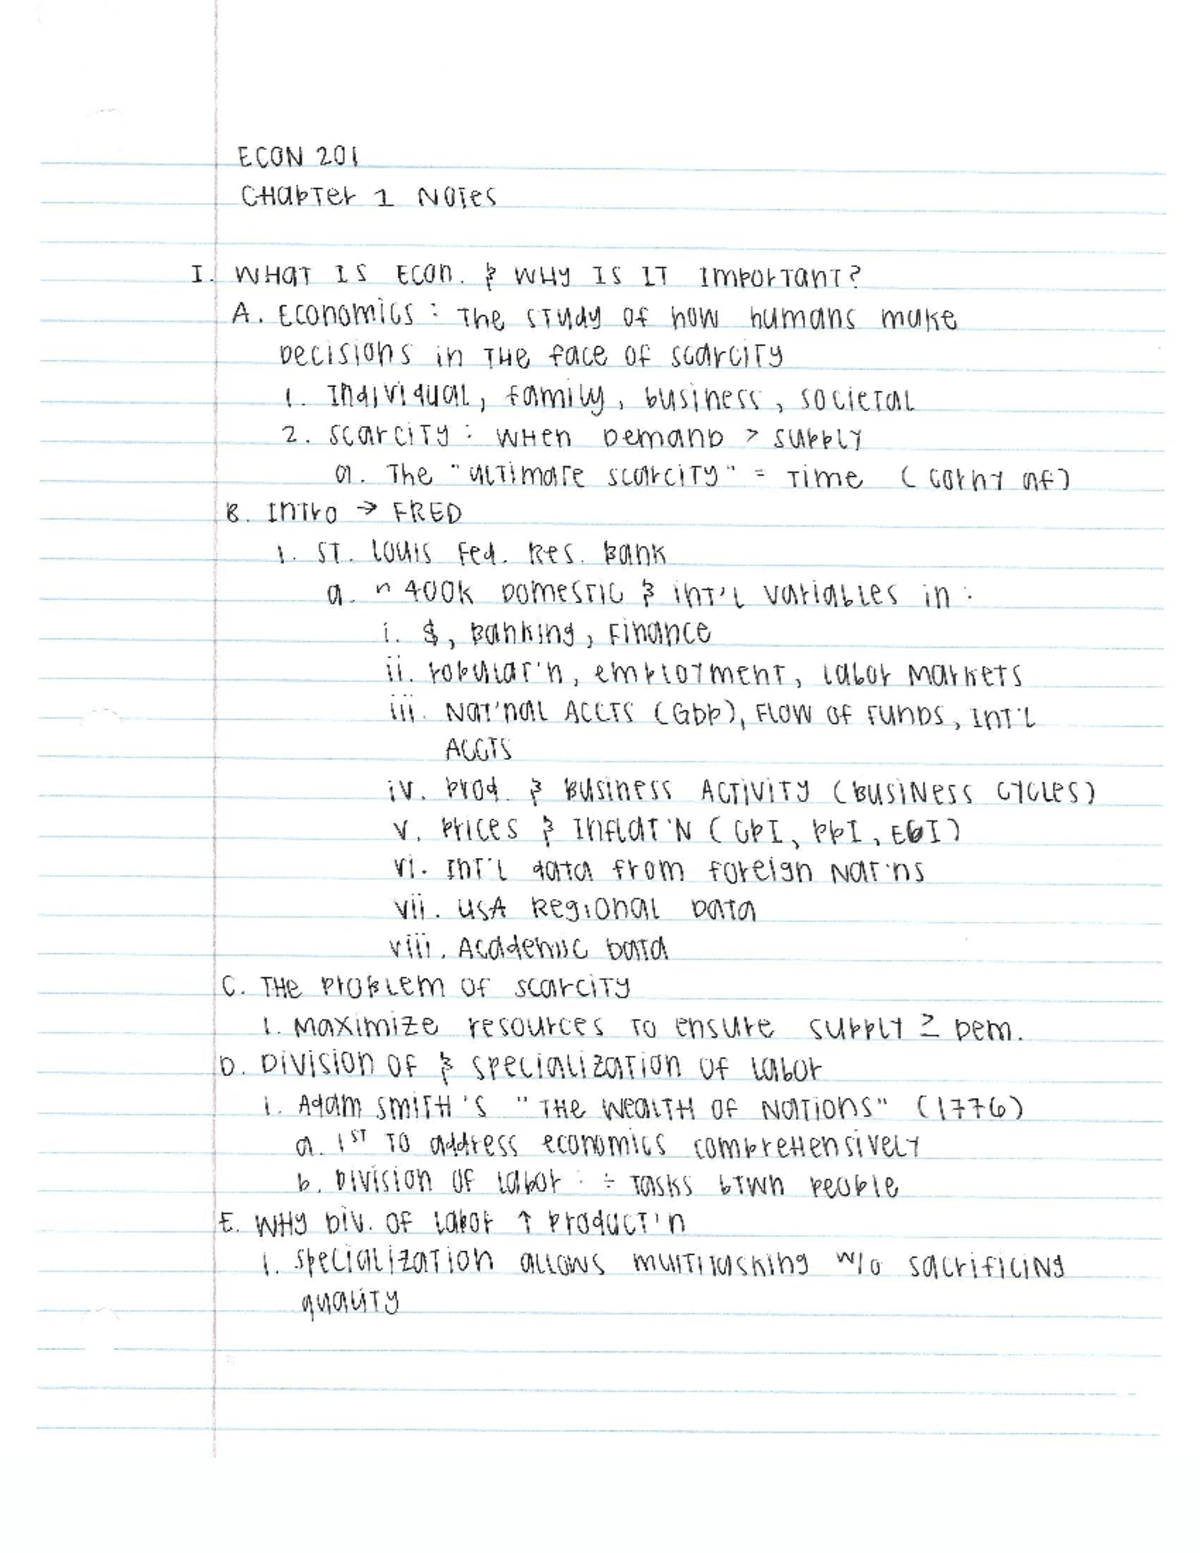 ECON 201
Chapter 1 Notes
I. What is Econ. & why is it important?
A. Economics : The study of how humans make
decisions in the face of scarcity
1. Individual, family, business, societal
2. Scarcity : when demand > supply
a. The "ultimate scarcity" = Time (
B. Intro → FRED
1. St. Louis Fed. Res. Bank
a. ~ 400k domestic & int'l variables in :
i. $, Banking, Finance
ii. Populat'n, employment, labor markets
iii. Nat'nal Accts (GDP), Flow of Funds, Int'l
Accts
iv. Prod. & Business Activity (Business Cycles)
v. Prices & Inflat'n (CPI, PPI, ECI)
vi. Int'l data from foreign nat'ns
vii. USA Regional Data
viii. Academic Data
C. The Problem of scarcity
1. Maximize resources to ensure supply ≥ Dem.
D. Division of & specialization of labor
1. Adam Smith's "The Wealth of Nations" (1776)
a. 1st to address economics comprehensively
b. Division of labor : ÷ tasks btwn people
E. Why Div. of labor ↑ Product'n
1. Specialization allows multitasking w/o sacrificing
quality